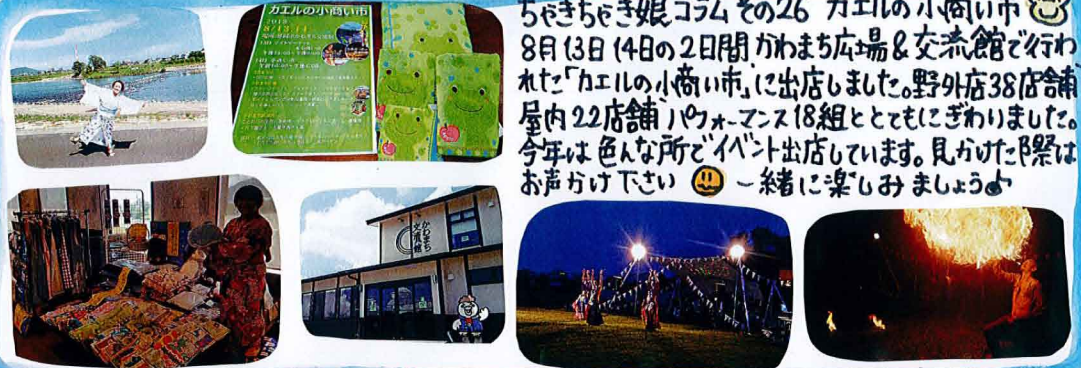 カエルの小商い市
2018
8/13・14
ちゃきちゃき娘コラム その26 カエルの小商い市
8月13日 14日の2日間 かわまち広場&交流館で行わ
れた「カエルの小商い市」に出店しました。野外店38店舗
屋内22店舗 パフォーマンス18組ととてもにぎわりました。
今年は色んな所でイベント出店しています。見かけた際は
お声かけ下さい 一緒に楽しみましょう♪
かわまち
交流館